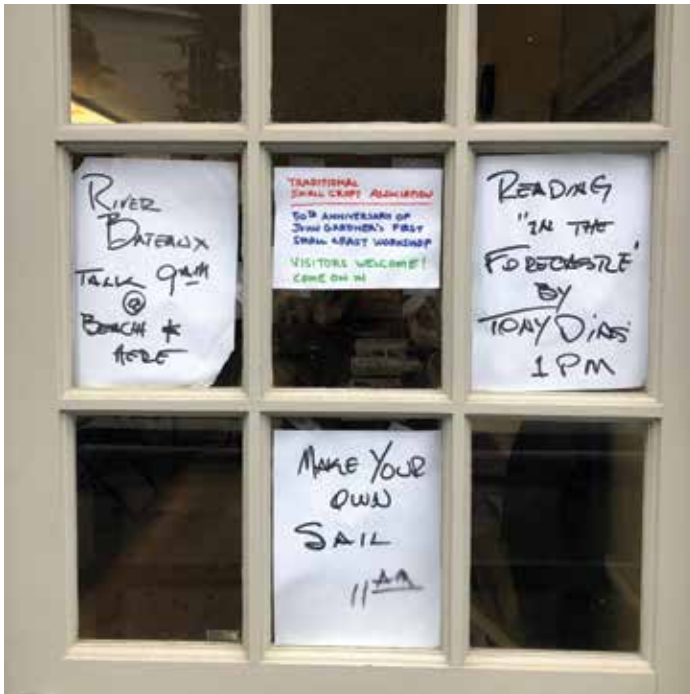 RIVER
BATEAUX
TALK 9AM
@
BEACH *
HERE
TRADITIONAL
SMALL CRAFT ASSOCIATION
50TH ANNIVERSARY OF
JOHN GARDNER'S FIRST
SMALL CRAFT WORKSHOP
VISITORS WELCOME!
COME ON IN
READING
"IN THE
FORECASTLE"
BY
TONY DIAS
1 PM
MAKE YOUR
OWN
SAIL
11 AM